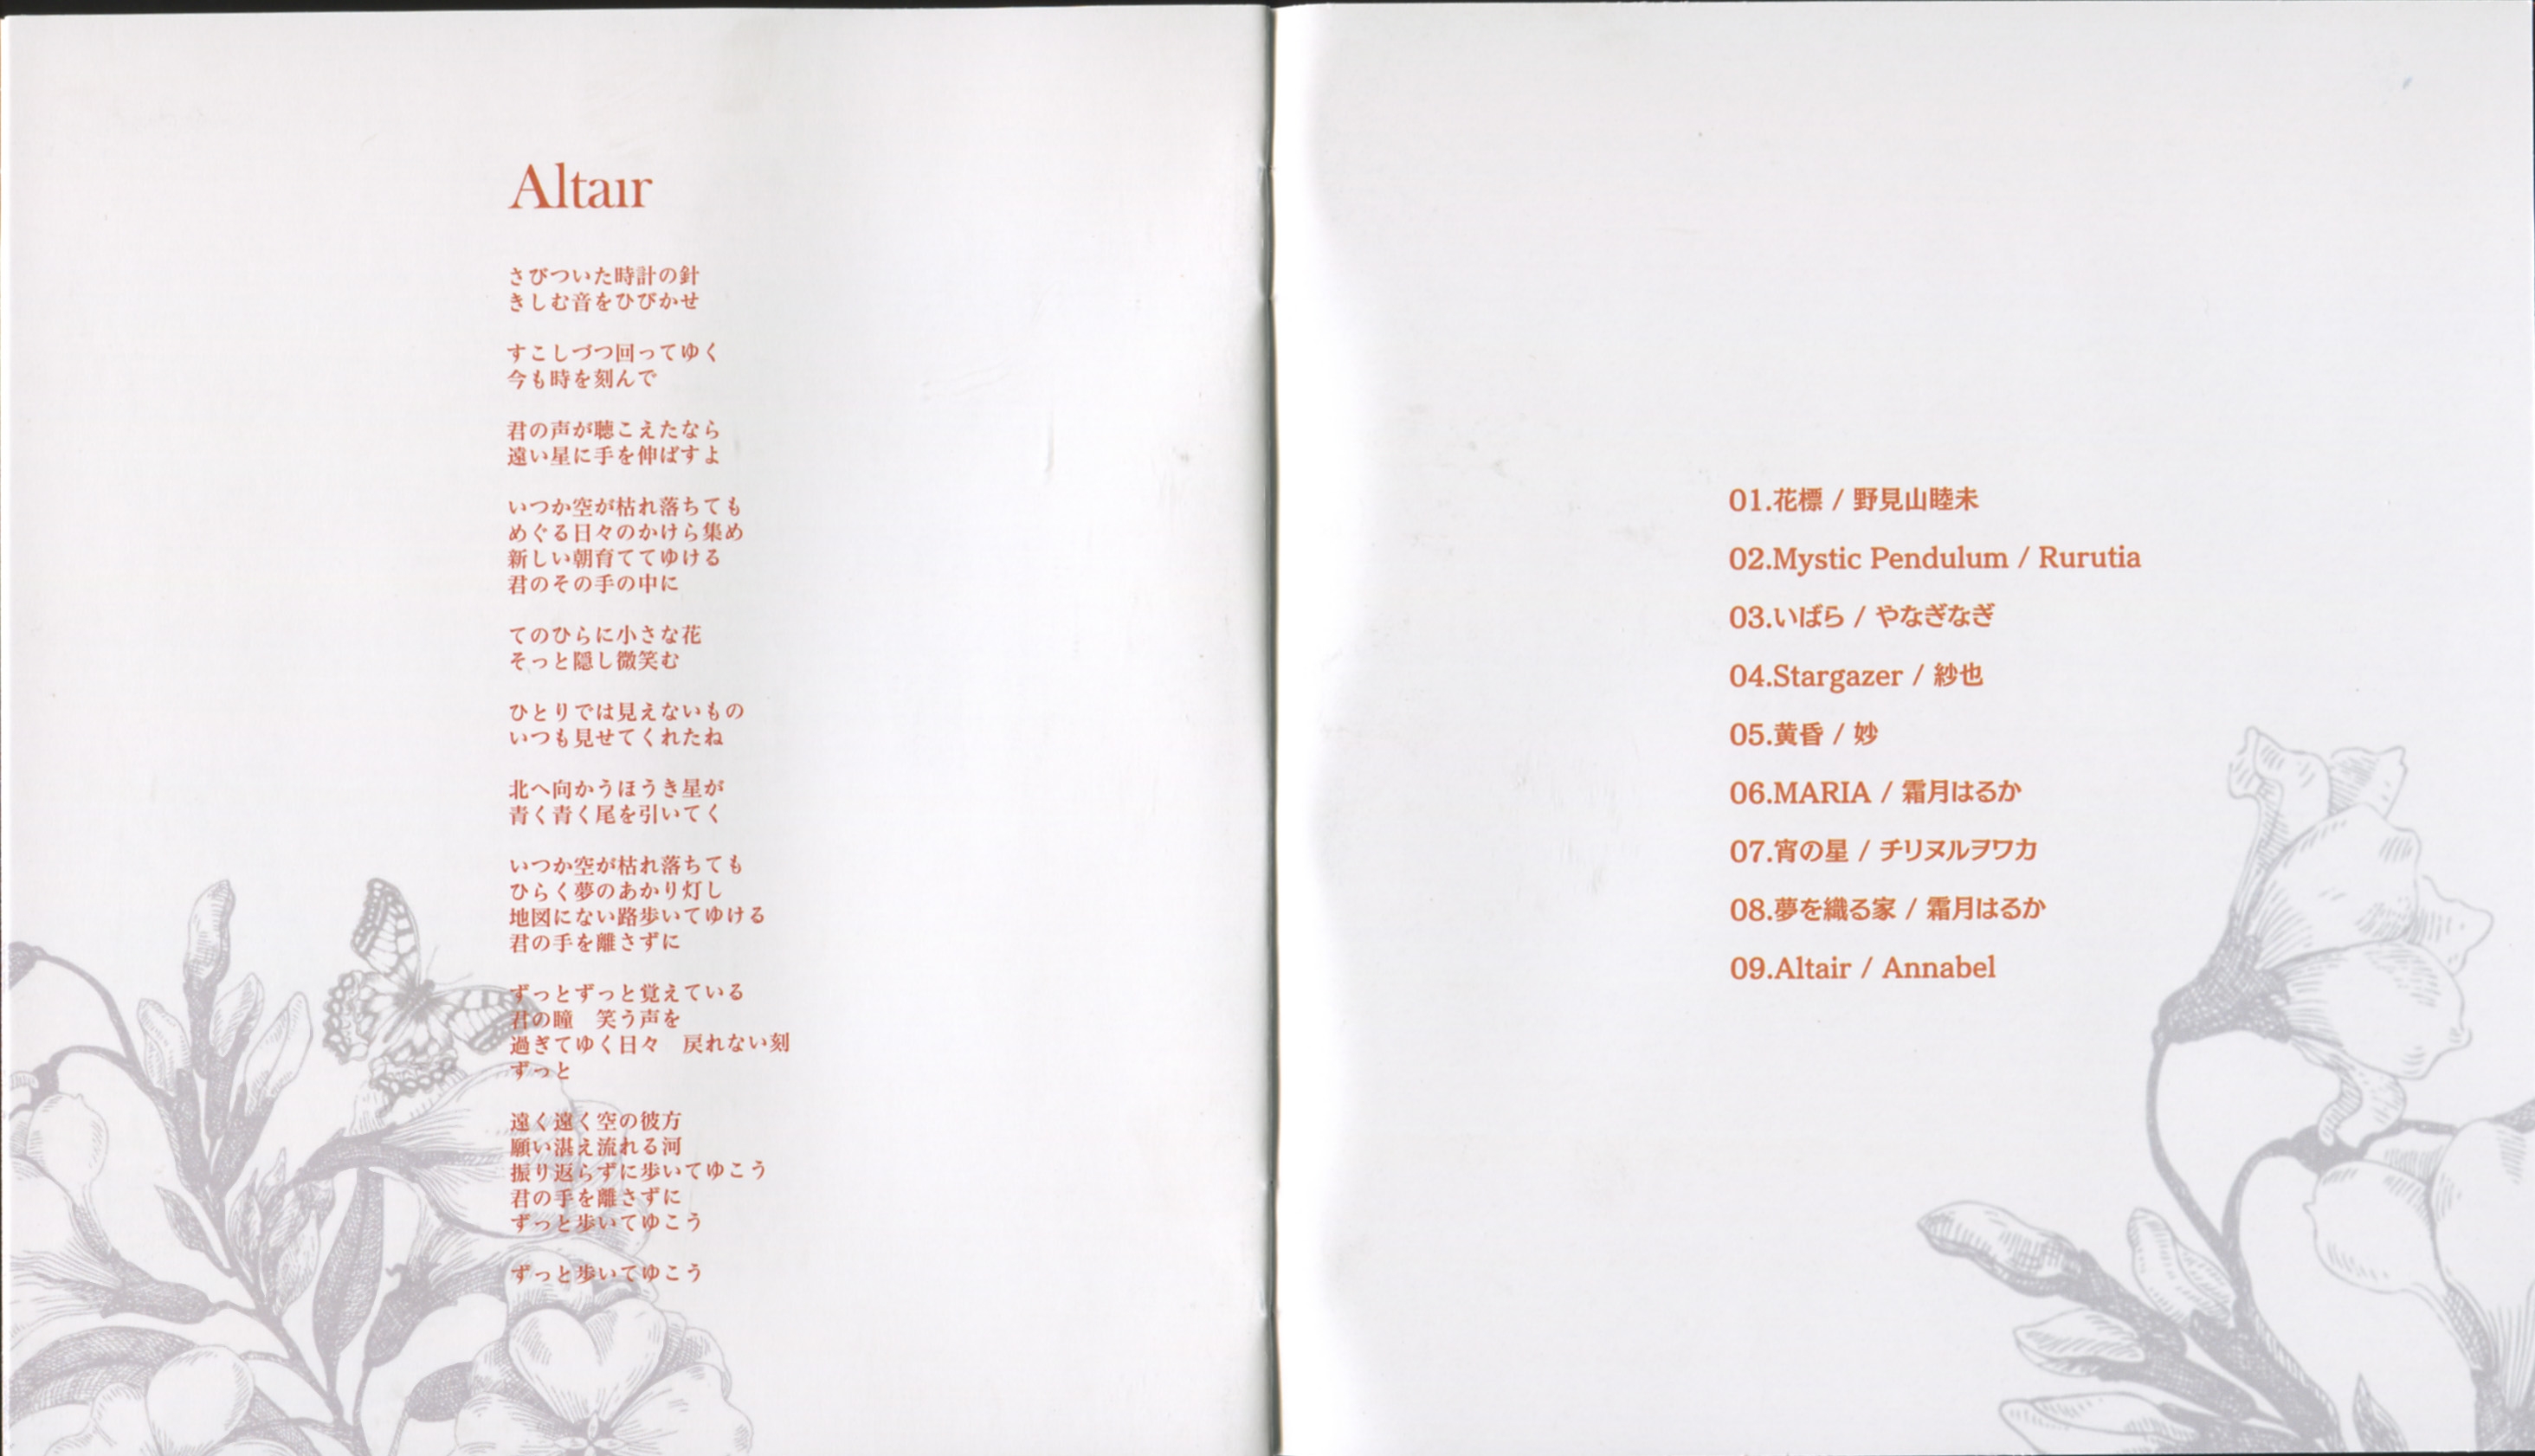 Altair
さびついた時計の針
きしむ音をひびかせ
すこしづつ回ってゆく
今も時を刻んで
君の声が聴こえたなら
遠い星に手を伸ばすよ
いつか空が枯れ落ちても
めぐる日々のかけら集め
新しい朝育ててゆける
君のその手の中に
てのひらに小さな花
そっと隠し微笑む
ひとりでは見えないもの
いつも見せてくれたね
北へ向かうほうき星が
青く青く尾を引いてく
いつか空が枯れ落ちても
ひらく夢のあかり灯し
地図にない路歩いてゆける
君の手を離さずに
ずっとずっと覚えている
君の瞳　笑う声を
過ぎてゆく日々　戻れない刻
ずっと
遠く遠く空の彼方
願い湛え流れる河
振り返らずに歩いてゆこう
君の手を離さずに
ずっと歩いてゆこう
ずっと歩いてゆこう
01.花標 / 野見山睦未
02.Mystic Pendulum / Rurutia
03.いばら / やなぎなぎ
04.Stargazer / 紗也
05.黄昏 / 妙
06.MARIA / 霜月はるか
07.宵の星 / チリヌルヲワカ
08.夢を織る家 / 霜月はるか
09.Altair / Annabel